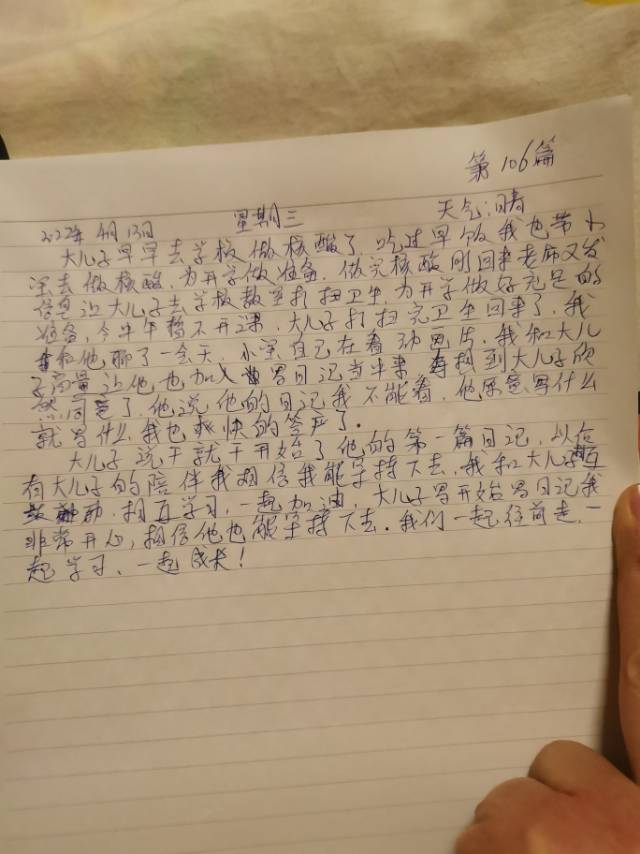 第106篇
2022年4月13日 星期三 天气:晴
大儿子早早去学校做核酸了,吃过早饭我也带小
宝去做核酸,为开学做准备。做完核酸刚回来老师又发
信息让大儿子去学校教室打扫卫生,为开学做好充足的
准备,今年年 不开课。大儿子打扫完卫生回来了,我
和他聊了一会天,小宝自己在看动画片。我和大儿
子商量让他也加入写日记当中来,想到大儿子欣
然同意了,他说他的日记我不能看,他愿意写什么
就写什么,我也爽快的答应了。
大儿子说干就干开始了他的第一篇日记,以后
有大儿子的陪伴我相信我能坚持下去,我和大儿子互
动,相互学习,一起加油,大儿子写开始写日记我
非常开心,相信他也能坚持下去。我们一起往前走,一
起学习、一起成长!